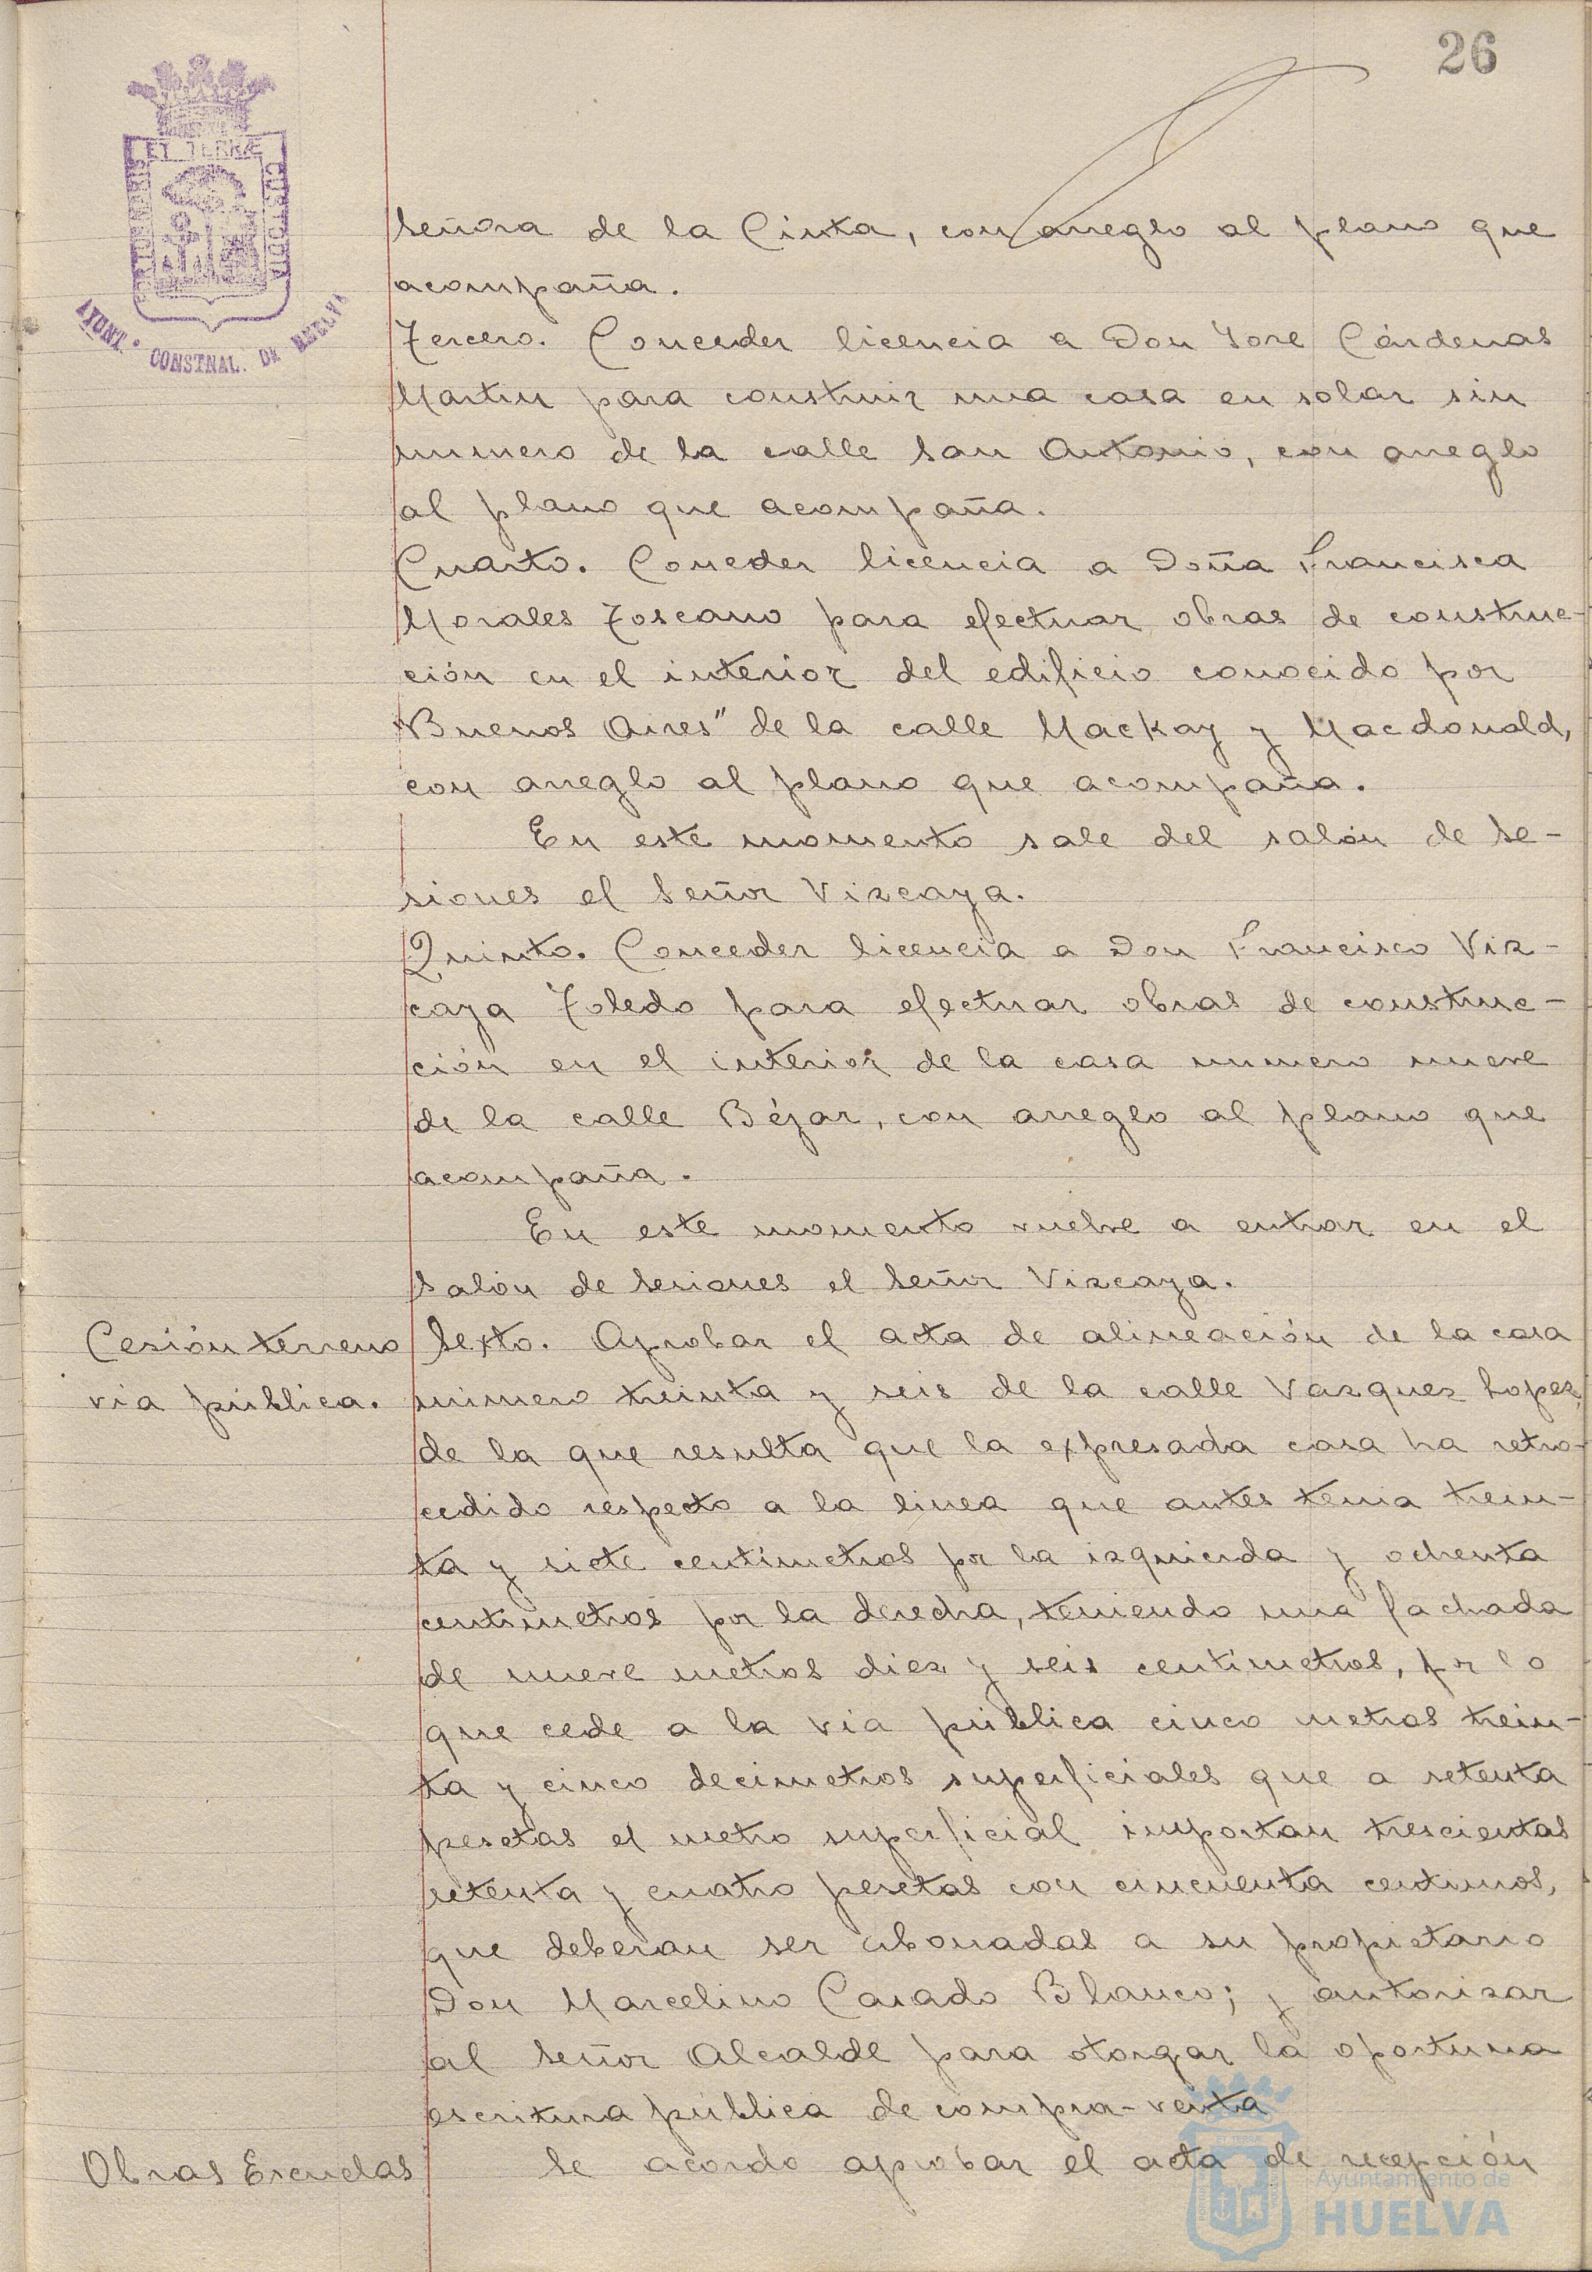 26
ET TERRÆ
CUSTODIA
AYUNT. CONSTNAL. DE HUELVA
Señora de la Cinta, con arreglo al plano que
acompaña.
Tercero. Conceder licencia a Don José Cárdenas
Martin para construir una casa en solar sin
numero de la calle San Antonio, con arreglo
al plano que acompaña.
Cuarto. Conceder licencia a Doña Francisca
Morales Toscano para efectuar obras de construc-
ción en el interior del edificio conocido por
"Buenos Aires" de la calle Mackay y Macdonald,
con arreglo al plano que acompaña.
En este momento sale del salón de Se-
siones el Señor Vizcaya.
Quinto. Conceder licencia a Don Francisco Viz-
caya Toledo para efectuar obras de construc-
ción en el interior de la casa numero nueve
de la calle Béjar, con arreglo al plano que
acompaña.
En este momento vuelve a entrar en el
Salón de Sesiones el Señor Vizcaya.
Cesión terreno
via pública.
Sexto. Aprobar el acta de alineación de la casa
número treinta y seis de la calle Vazquez Lopez,
de la que resulta que la expresada casa ha retro-
cedido respecto a la linea que antes tenia trein-
ta y siete centímetros por la izquierda y ochenta
centimetros por la derecha, teniendo una fachada
de nueve metros diez y seis centímetros, por lo
que cede a la via pública cinco metros trein-
ta y cinco decimetros superficiales que a setenta
pesetas el metro superficial importan trescientas
setenta y cuatro pesetas con cincuenta centimos,
que deberan ser abonadas a su propietario
Don Marcelino Casado Blanco; y autorizar
al Señor Alcalde para otorgar la oportuna
escritura pública de compra-venta
Obras Escuelas
Se acordo aprobar el acta de recepción
Ayuntamiento de
HUELVA